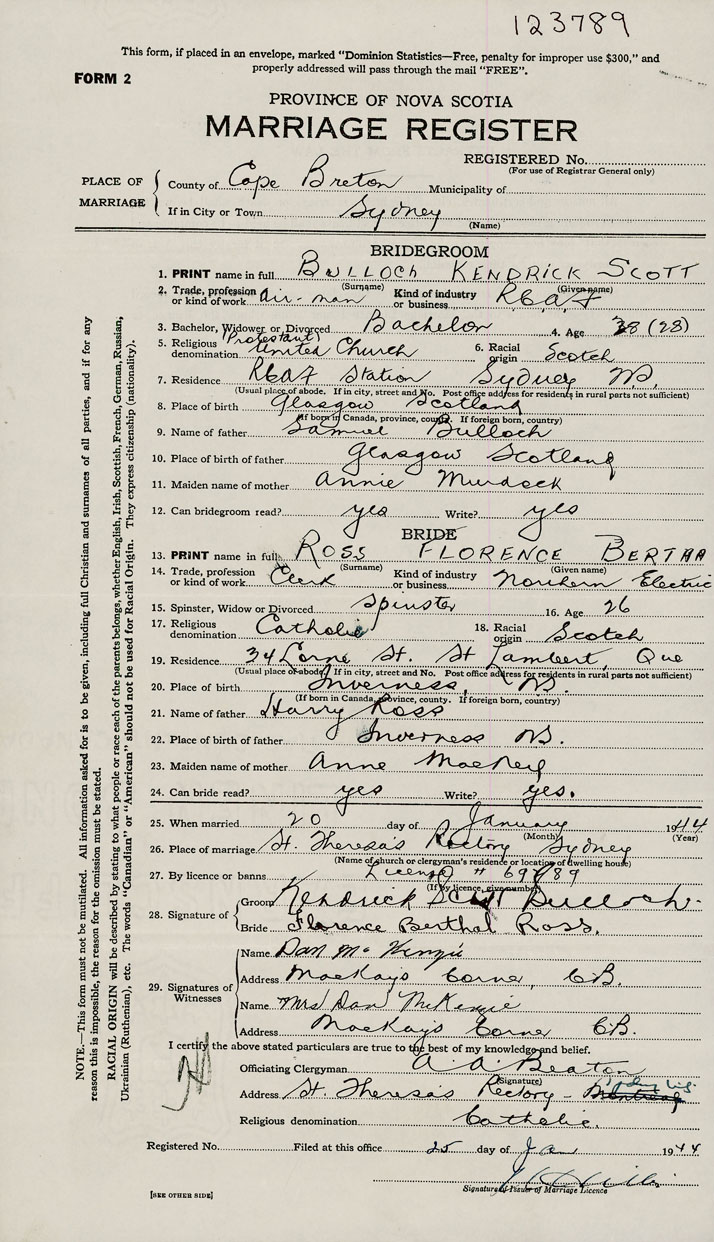 123789
This form, if placed in an envelope, marked "Dominion Statistics—Free, penalty for improper use $300," and
properly addressed will pass through the mail "FREE".
FORM 2
PROVINCE OF NOVA SCOTIA
MARRIAGE REGISTER
REGISTERED No.
(For use of Registrar General only)
PLACE OF MARRIAGE
County of Cape Breton Municipality of
If in City or Town Sydney
(Name)
BRIDEGROOM
1. PRINT name in full BULLOCH KENDRICK SCOTT
(Surname) (Given name)
2. Trade, profession or kind of work air-man Kind of industry or business RCAF
3. Bachelor, Widower or Divorced Bachelor 4. Age 28 (28)
5. Religious denomination (Protestant) United Church 6. Racial origin Scotch
7. Residence RCAF Station Sydney NS.
(Usual place of abode. If in city, street and No. Post office address for residents in rural parts not sufficient)
8. Place of birth Glasgow Scotland
(If born in Canada, province, county. If foreign born, country)
9. Name of father Samuel Bulloch
10. Place of birth of father Glasgow Scotland
11. Maiden name of mother Annie Murdock
12. Can bridegroom read? yes Write? yes
BRIDE
13. PRINT name in full ROSS FLORENCE BERTHA
(Surname) (Given name)
14. Trade, profession or kind of work Clerk Kind of industry or business Northern Electric
15. Spinster, Widow or Divorced Spinster 16. Age 26
17. Religious denomination Catholic 18. Racial origin Scotch
19. Residence 34 Lorne St. St Lambert, Que
(Usual place of abode. If in city, street and No. Post office address for residents in rural parts not sufficient)
20. Place of birth Inverness, NS.
(If born in Canada, province, county. If foreign born, country)
21. Name of father Harry Ross
22. Place of birth of father Inverness NS.
23. Maiden name of mother Anne MacNeil
24. Can bride read? yes Write? yes.
25. When married 20 day of January 1944
(Month) (Year)
26. Place of marriage St. Theresa's Rectory Sydney
(Name of church or clergyman's residence or location of dwelling house)
27. By licence or banns License #
(If by licence, give number)
28. Signature of
Groom Kendrick Scott Bulloch.
Bride Florence Bertha Ross.
29. Signatures of Witnesses
Name Dan McKenzie
Address MacKay's Corner, C.B.
Name Mrs Dan McKenzie
Address MacKay's Corner C.B.
I certify the above stated particulars are true to the best of my knowledge and belief.
Officiating Clergyman A. A. Beaton
(Signature)
Address St. Theresa's Rectory -
Religious denomination Catholic.
Registered No. Filed at this office 25 day of Jan 1944
Signature of Issuer of Marriage Licence
[SEE OTHER SIDE]
NOTE.—This form must not be mutilated. All information asked for is to be given, including full Christian and surnames of all parties, and if for any
reason this is impossible, the reason for the omission must be stated.
RACIAL ORIGIN will be described by stating to what people or race each of the parents belongs, whether English, Irish, Scottish, French, German, Russian,
Ukrainian (Ruthenian), etc. The words "Canadian" or "American" should not be used for Racial Origin. They express citizenship (nationality).